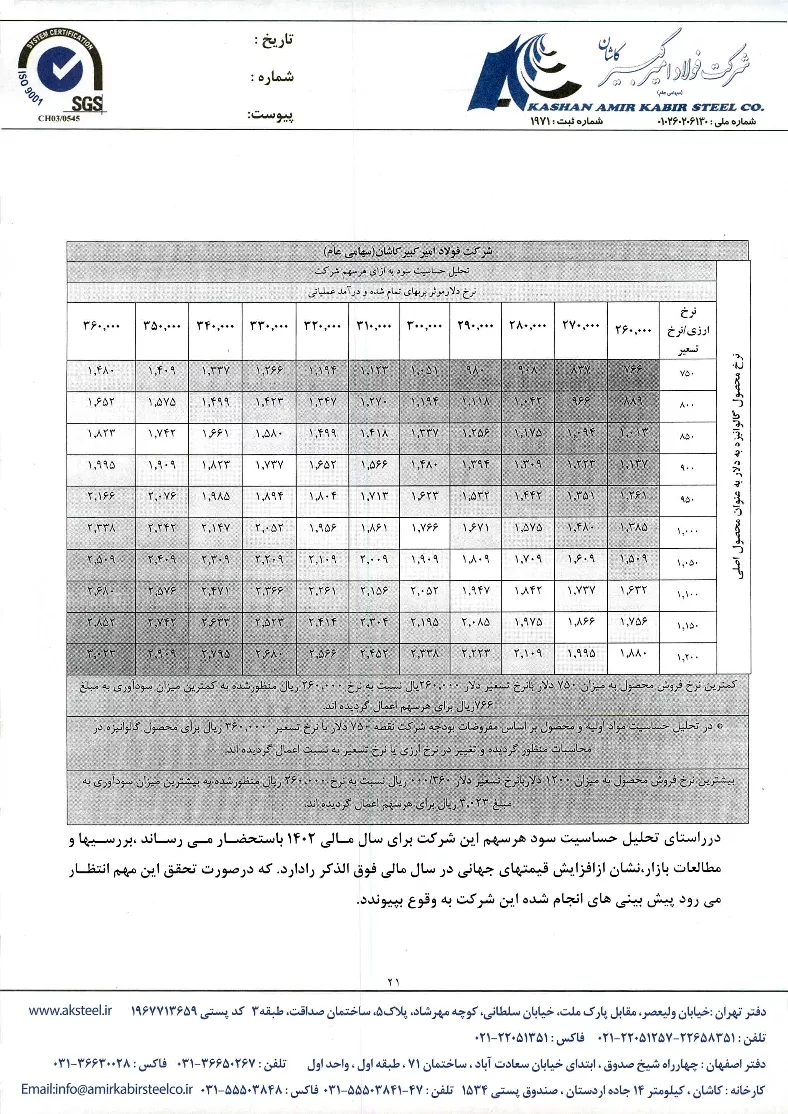 تاریخ :
شماره :
پیوست:
SYSTEM CERTIFICATION
ISO 9001
SGS
CH03/0545
شرکت فولاد امیرکبیر کاشان
(سهامی عام)
KASHAN AMIR KABIR STEEL CO.
شماره ملی : ۰۱۰۲۶۰۲۰۶۱۳۰ شماره ثبت : ۱۹۷۱
شرکت فولاد امیرکبیر کاشان(سهامی عام)
تحلیل حساسیت سود به ازای هرسهم شرکت
نرخ دلارموثر بربهای تمام شده و درآمد عملیاتی
نرخ محصول گالوانیزه به دلار به عنوان محصول اصلی
نرخ ارزی/نرخ تسعیر ۲۶۰,۰۰۰ ۲۷۰,۰۰۰ ۲۸۰,۰۰۰ ۲۹۰,۰۰۰ ۳۰۰,۰۰۰ ۳۱۰,۰۰۰ ۳۲۰,۰۰۰ ۳۳۰,۰۰۰ ۳۴۰,۰۰۰ ۳۵۰,۰۰۰ ۳۶۰,۰۰۰
۷۵۰ ۷۶۶ ۸۳۷ ۹۰۸ ۹۸۰ ۱,۰۵۱ ۱,۱۲۳ ۱,۱۹۴ ۱,۲۶۶ ۱,۳۳۷ ۱,۴۰۹ ۱,۴۸۰
۸۰۰ ۸۸۹ ۹۶۶ ۱,۰۴۲ ۱,۱۱۸ ۱,۱۹۴ ۱,۲۷۰ ۱,۳۴۷ ۱,۴۲۳ ۱,۴۹۹ ۱,۵۷۵ ۱,۶۵۲
۸۵۰ ۱,۰۱۳ ۱,۰۹۴ ۱,۱۷۵ ۱,۲۵۶ ۱,۳۳۷ ۱,۴۱۸ ۱,۴۹۹ ۱,۵۸۰ ۱,۶۶۱ ۱,۷۴۲ ۱,۸۲۳
۹۰۰ ۱,۱۳۷ ۱,۲۲۳ ۱,۳۰۹ ۱,۳۹۴ ۱,۴۸۰ ۱,۵۶۶ ۱,۶۵۲ ۱,۷۳۷ ۱,۸۲۳ ۱,۹۰۹ ۱,۹۹۵
۹۵۰ ۱,۲۶۱ ۱,۳۵۱ ۱,۴۴۲ ۱,۵۳۲ ۱,۶۲۳ ۱,۷۱۳ ۱,۸۰۴ ۱,۸۹۴ ۱,۹۸۵ ۲,۰۷۶ ۲,۱۶۶
۱,۰۰۰ ۱,۳۸۵ ۱,۴۸۰ ۱,۵۷۵ ۱,۶۷۱ ۱,۷۶۶ ۱,۸۶۱ ۱,۹۵۶ ۲,۰۵۲ ۲,۱۴۷ ۲,۲۴۲ ۲,۳۳۸
۱,۰۵۰ ۱,۵۰۹ ۱,۶۰۹ ۱,۷۰۹ ۱,۸۰۹ ۱,۹۰۹ ۲,۰۰۹ ۲,۱۰۹ ۲,۲۰۹ ۲,۳۰۹ ۲,۴۰۹ ۲,۵۰۹
۱,۱۰۰ ۱,۶۳۲ ۱,۷۳۷ ۱,۸۴۲ ۱,۹۴۷ ۲,۰۵۲ ۲,۱۵۶ ۲,۲۶۱ ۲,۳۶۶ ۲,۴۷۱ ۲,۵۷۶ ۲,۶۸۰
۱,۱۵۰ ۱,۷۵۶ ۱,۸۶۶ ۱,۹۷۵ ۲,۰۸۵ ۲,۱۹۵ ۲,۳۰۴ ۲,۴۱۴ ۲,۵۲۳ ۲,۶۳۳ ۲,۷۴۲ ۲,۸۵۲
۱,۲۰۰ ۱,۸۸۰ ۱,۹۹۵ ۲,۱۰۹ ۲,۲۲۳ ۲,۳۳۸ ۲,۴۵۲ ۲,۵۶۶ ۲,۶۸۰ ۲,۷۹۵ ۲,۹۰۹ ۳,۰۲۳
کمترین نرخ فروش محصول به میزان ۷۵۰ دلار بانرخ تسعیر دلار ۲۶۰,۰۰۰یال نسبت به نرخ ۲۶۰,۰۰۰ ریال منظورشده به کمترین میزان سودآوری به مبلغ
۷۶۶ریال برای هرسهم اعمال گردیده اند.
* در تحلیل حساسیت مواد اولیه و محصول بر اساس مفروضات بودجه شرکت نقطه ۷۵۰ دلار با نرخ تسعیر ۲۶۰,۰۰۰ ریال برای محصول گالوانیزه در
محاسبات منظور گردیده و تغییر در نرخ ارزی یا نرخ تسعیر به نسبت اعمال گردیده اند.
بیشترین نرخ فروش محصول به میزان ۱۲۰۰ دلاربانرخ تسعیر دلار ۰۰۰/۳۶۰ ریال نسبت به نرخ ۲۶۰,۰۰۰ ریال منظورشده به بیشترین میزان سودآوری به
مبلغ ۳,۰۲۳ ریال برای هرسهم اعمال گردیده اند.
درراستای تحلیل حساسیت سود هرسهم این شرکت برای سال مالی ۱۴۰۲ باستحضار می رساند ،بررسیها و
مطالعات بازار،نشان ازافزایش قیمتهای جهانی در سال مالی فوق الذکر رادارد. که درصورت تحقق این مهم انتظار
می رود پیش بینی های انجام شده این شرکت به وقوع بپیوندد.
۲۱
دفتر تهران :خیابان ولیعصر، مقابل پارک ملت، خیابان سلطانی، کوچه مهرشاد، پلاک۵، ساختمان صداقت، طبقه۳ کد پستی ۱۹۶۷۷۱۳۶۵۹ www.aksteel.ir
تلفن : ۲۲۶۵۸۳۵۱-۲۲۰۵۱۲۵۷-۰۲۱ فاکس : ۲۲۰۵۱۳۵۱-۰۲۱
دفتر اصفهان : چهارراه شیخ صدوق ، ابتدای خیابان سعادت آباد ، ساختمان ۷۱ ، طبقه اول ، واحد اول تلفن : ۳۶۶۵۰۲۶۷-۰۳۱ فاکس : ۳۶۶۳۰۰۲۸-۰۳۱
کارخانه : کاشان ، کیلومتر ۱۴ جاده اردستان ، صندوق پستی ۱۵۳۴ تلفن : ۴۷-۵۵۵۰۳۸۴۱-۰۳۱ فاکس : ۵۵۵۰۳۸۴۸-۰۳۱ Email:info@amirkabirsteelco.ir